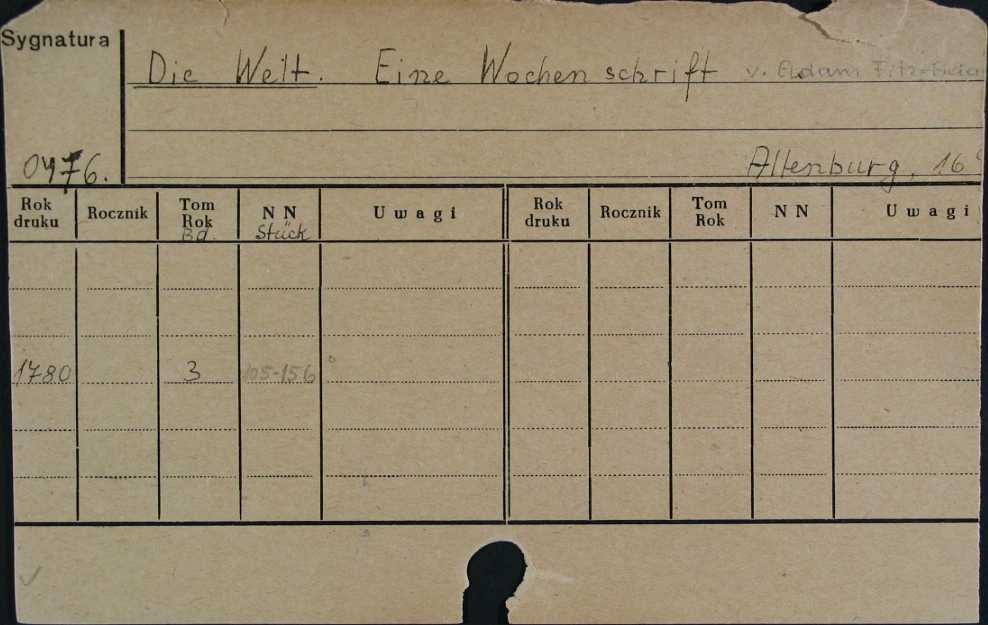 Sygnatura
Die Welt. Eine Wochenschrift v. Adam
0476.
Altenburg, 16
Rok druku Rocznik Tom Rok Bd. N N Stück Uwagi Rok druku Rocznik Tom Rok N N Uwagi
1780 3 105-156